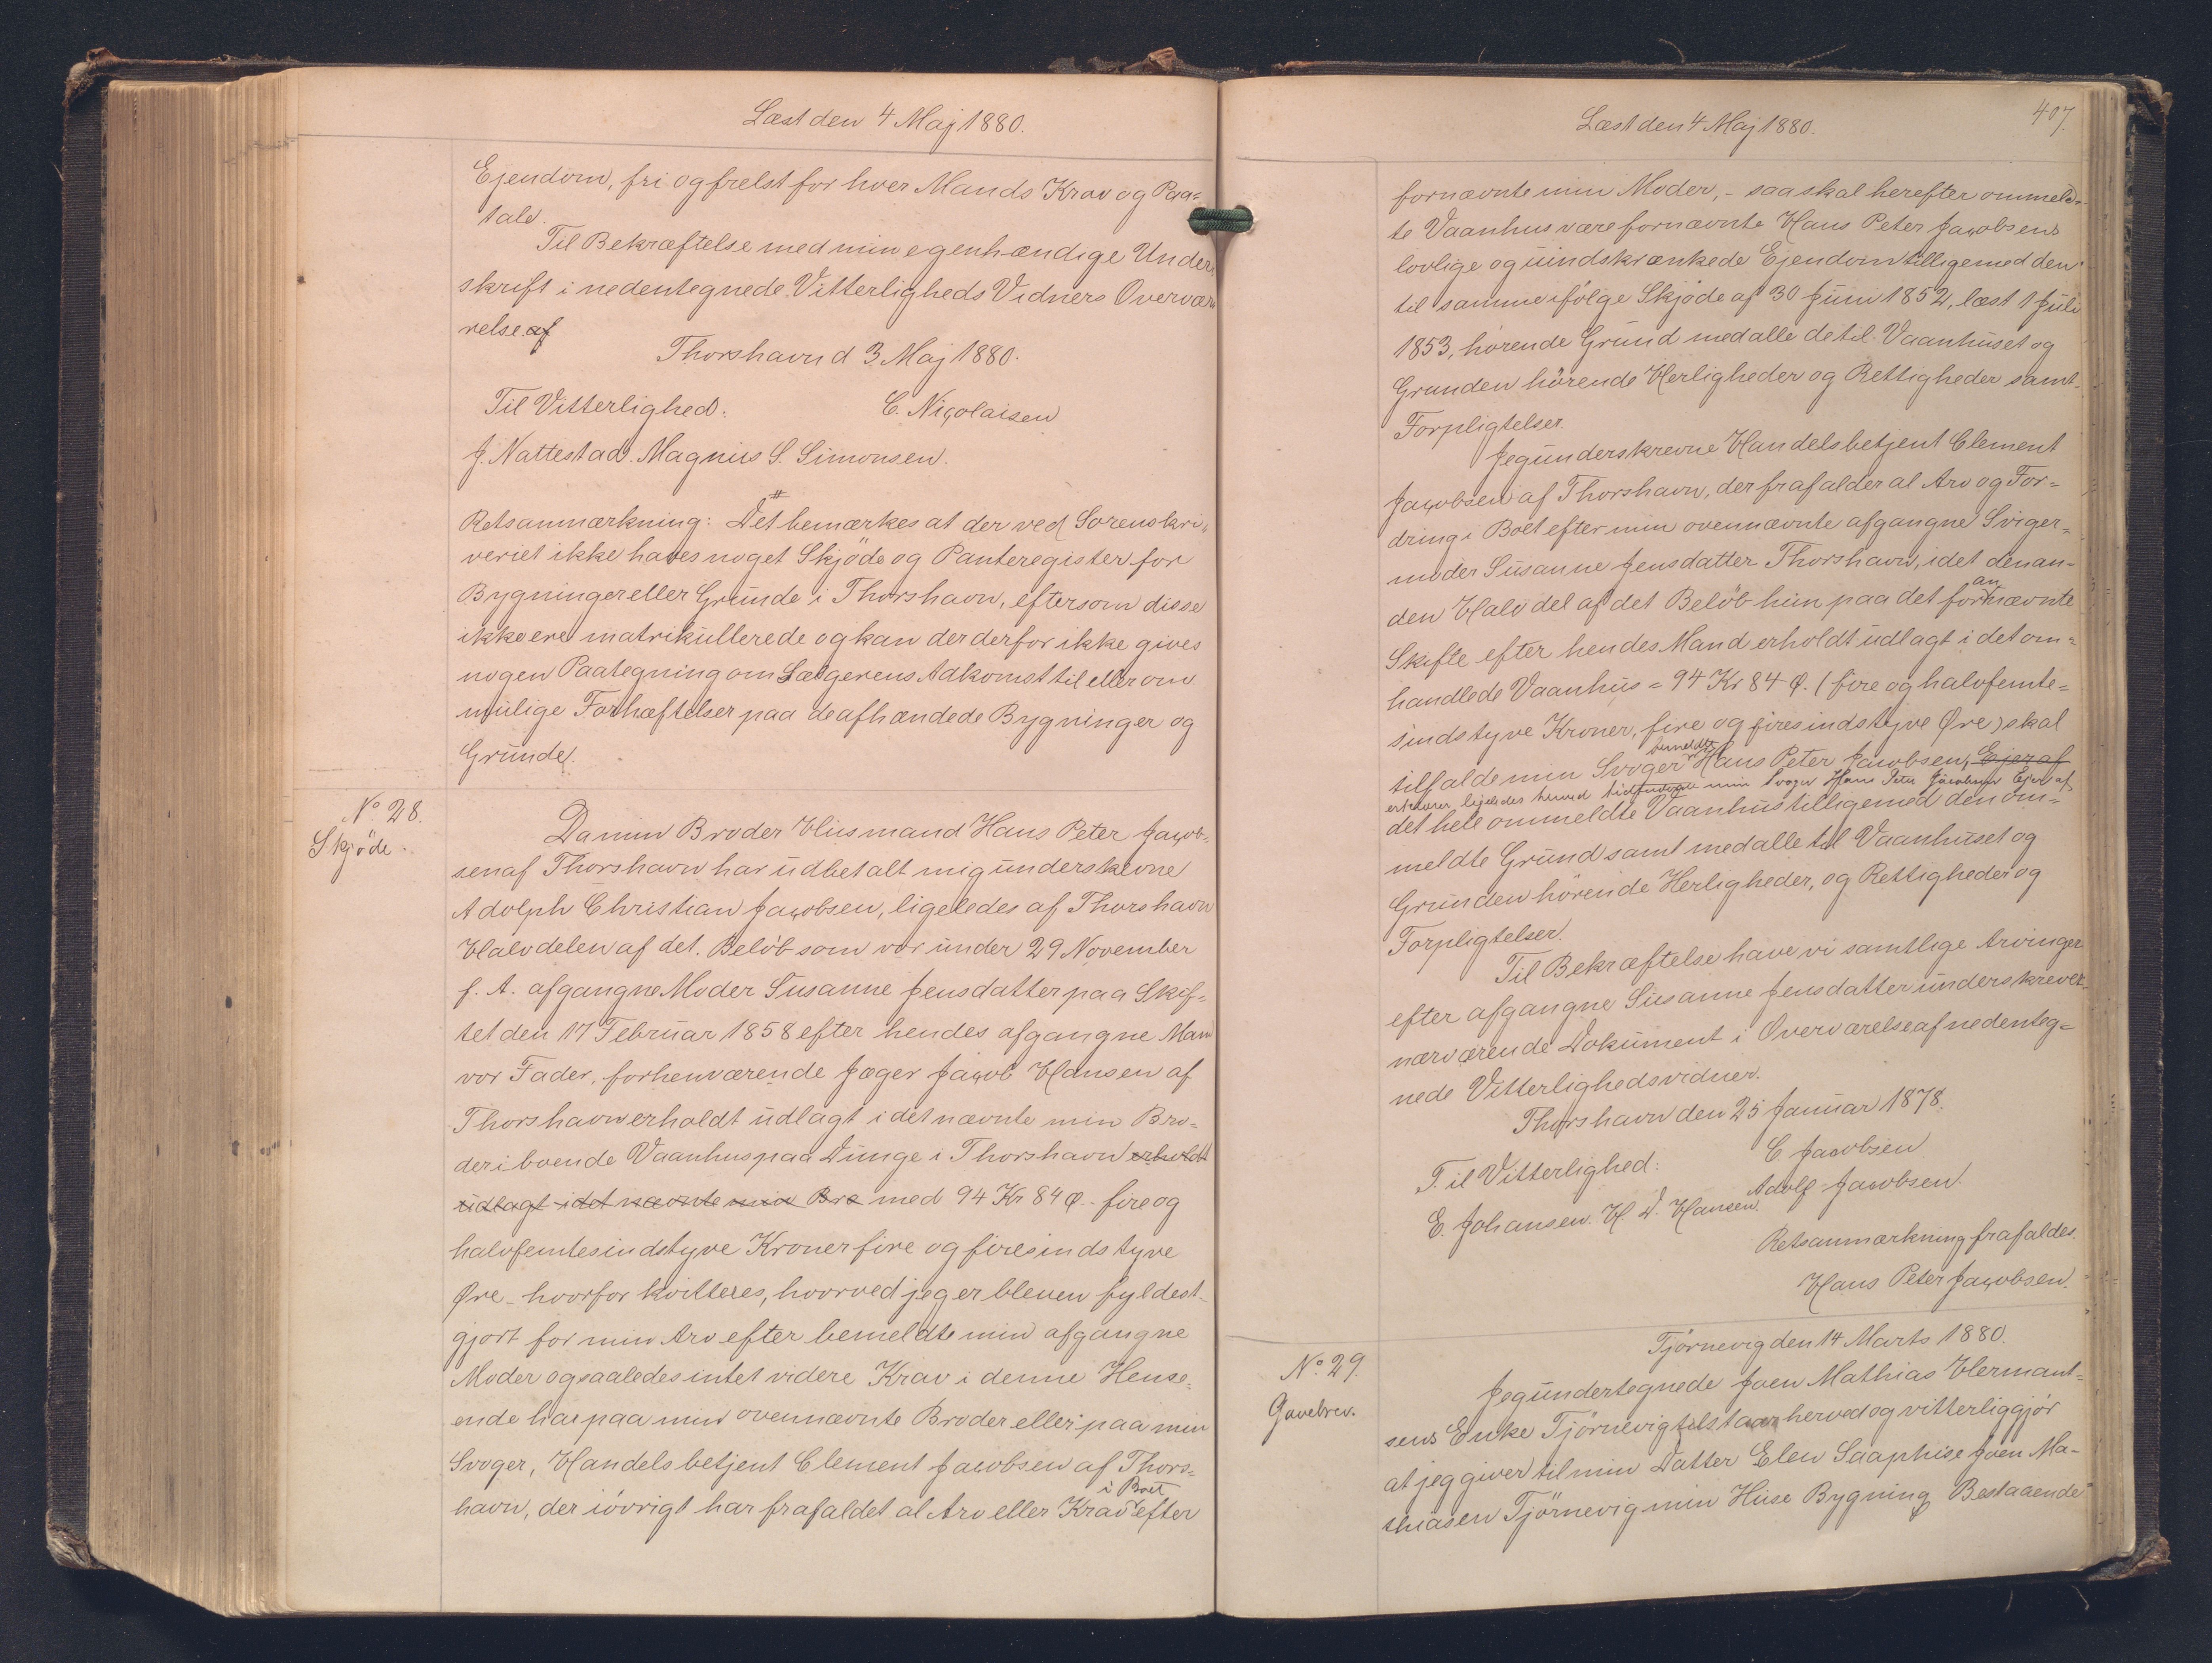 Læst den 4 Maj 1880.
Ejendom, fri og frelst for hver Mands Krav og Paa=
tale.
Til Bekræftelse med min egenhændige Under
skrift i nedentegnede Vitterligheds Vidners Overvæ
relse af
Thorshavn d 3 Maj 1880.
Til Vitterlighed: C. Nicolaisen
J. Nattestad. Magnus S. Simonsen.
Retsanmærkning: Det bemærkes at der ved Sorenskri=
veriet ikke haves noget Skjöde og Panteregister for
Bygninger eller Grunde i Thorshavn, eftersom disse
ikke ere matrikullerede og kan der derfor ikke gives
nogen Paategning om Sælgerens Adkomst til eller om
mulige Forhæftelser paa de afhændede Bygninger og
Grunde.
No 28.
Skjöde.
Da min Broder Huusmand Hans Peter Jacob=
sen af Thorshavn har udbetalt mig underskrevne
Adolph Christian Jacobsen, ligeledes af Thorshavn
Halvdelen af det Belöb som vor under 29 November
f. A. afgangne Moder Susanne Jensdatter paa Skif=
tet den 17 Februar 1858 efter hendes afgangne Man
vor Fader, forhenværende Jæger Jacob Hansen af
Thorshavn erholdt udlagt i det nævnte min Bro=
der iboende Vaanhus paa Dunge i Thorshavn erholdt
udlagt i det nævnte min Bro med 94 Kr 84 Ø. - fire og
halvfemtesindstyve Kroner fire og firesindstyve
Øre - hvorfor kvitteres, hvorved jeg er bleven fyldest=
gjort for min Arv efter bemeldte min afgangne
Moder og saaledes intet videre Krav i denne Hense=
ende har paa min ovennævnte Broder eller paa min
Svoger, Handelsbetjent Clement Jacobsen af Thors=
i Boet
havn, der iövrigt har frafaldet al Arv eller Krav efter
407.
Læst den 4 Maj 1880.
fornævnte min Moder, - saa skal herefter ommeld=
te Vaanhus være fornævnte Hans Peter Jacobsens
lovlige og uindskrænkede Ejendom tilligemed den
til samme ifölge Skjöde af 30 Juni 1852, læst 1 Juli
1853, hörende Grund med alle de til Vaanhuset og
Grunden hörende Herligheder og Rettigheder samt
Forpligtelser.
Jeg underskrevne Handelsbetjent Clement
Jacobsen af Thorshavn, der frafalder al Arv og For=
dring i Boet efter min ovennævnte afgangne Sviger=
moder Susanne Jensdatter Thorshavn, idet den an=
an
den Halvdel af det Belöb hun paa det fornævnte
Skifte efter hendes Mand erholdt udlagt i det om=
handlede Vaanhus = 94 Kr 84 Ø. (fire og halvfemte=
sindstyve Kroner, fire og firesindstyve Øre) skal
bemeldte
tilfalde min Svoger Hans Peter Jacobsen, Ejer af
erklærer, ligeledes herved min Svoger Hans Peter Jacobsen Ejer af
det hele ommeldte Vaanhus tilligemed den om=
meldte Grund samt med alle til Vaanhuset og
Grunden hörende Herligheder, og Rettigheder og
Forpligtelser.
Til Bekræftelse have vi samtlige Arvinger
efter afgangne Susanne Jensdatter underskrevet
nærværende Dokument i Overværelse af nedenteg=
nede Vitterlighedsvidner.
Thorshavn den 25 Januar 1878.
Til Vitterlighed: C. Jacobsen
Adolf Jacobsen.
E. Johansen. H. D. Hansen.
Retsanmærkning frafaldes.
Hans Peter Jacobsen.
No 29.
Gavebrev.
Tjörnevig den 14 Marts 1880.
Jeg undertegnede Joen Mathias Hermant=
sens Enke Tjörnevig tilstaar herved og vitterliggjör
at jeg giver til min Datter Elen Saaphise Joen Ma=
thiasen Tjörnevig min Huse Bygning Bestaaende